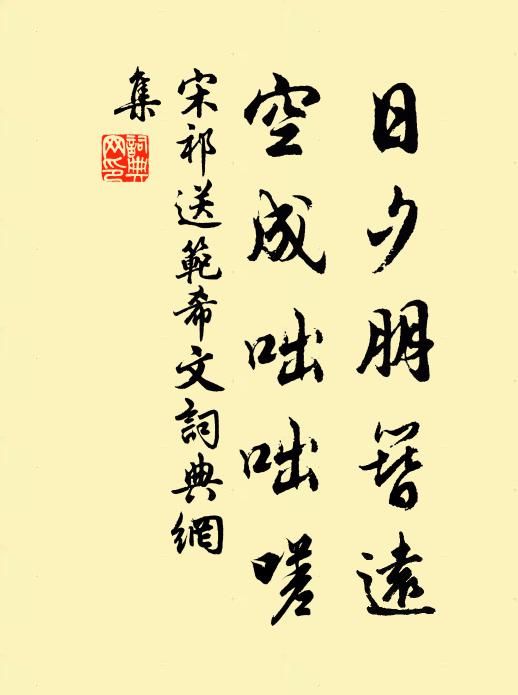 日夕朋簪遠
空成咄咄嗟
宋祁送範希文詞典網
集
詞典網印